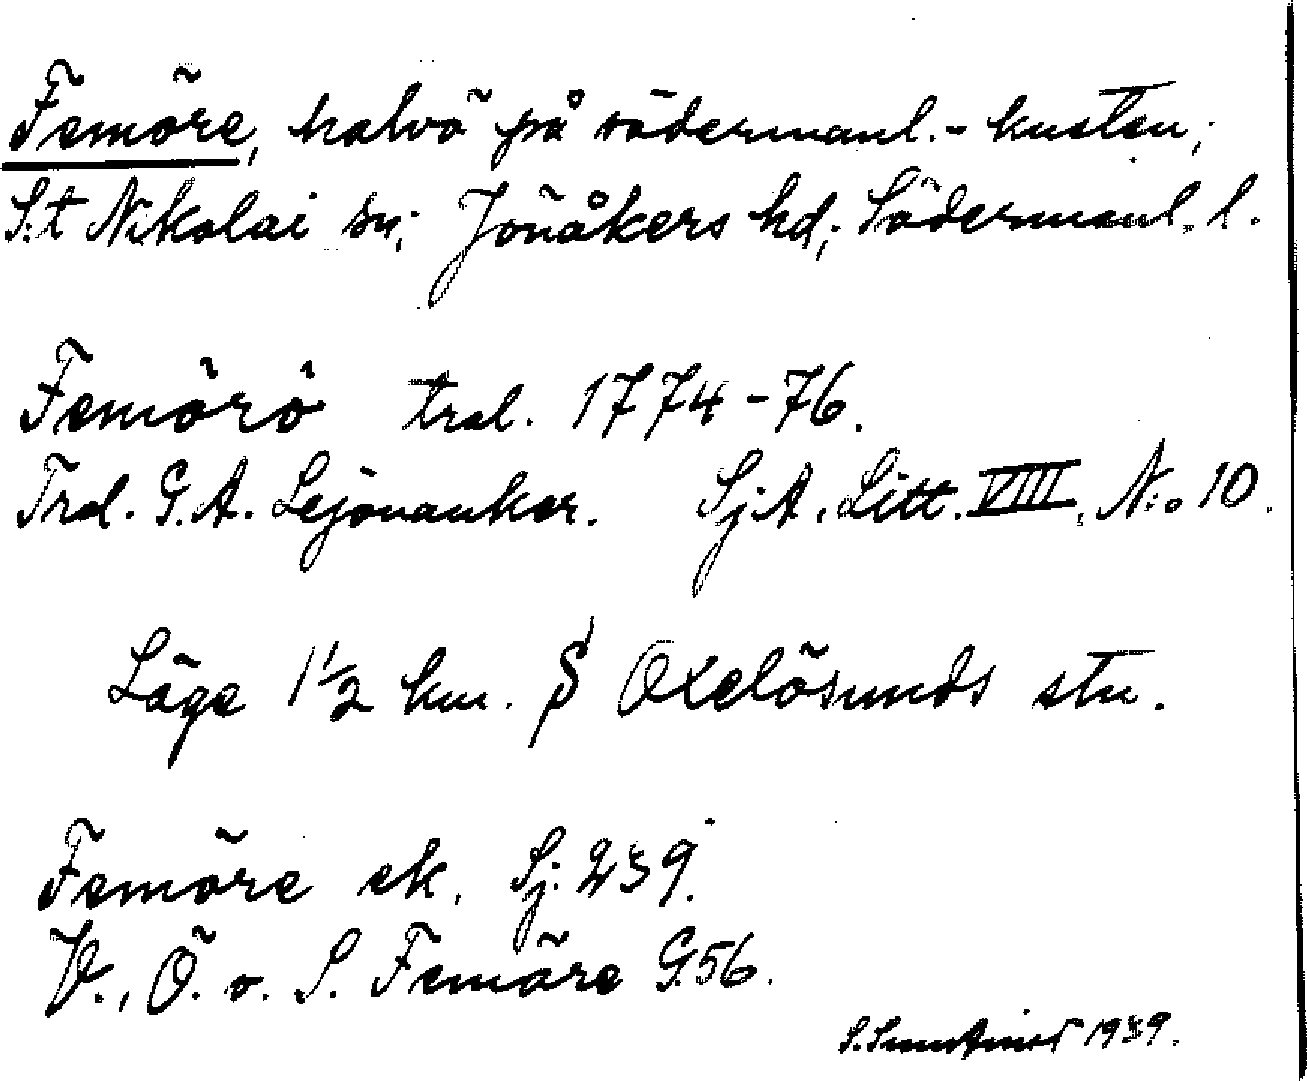 Femöre, halvö på södermanl.-kusten;
S:t Nikolai sn; Jönåkers hd; Södermanl. l.
Femörö trol. 1774-76.
Trol. G. A. Lejonankar. Sj. A. Litt. VIII, N:o 10.
Läge 1 1/2 km. S Oxelösunds stn.
Femöre ek. Sj. 239.
V., Ö. o. S. Femöre G.56.
1939.